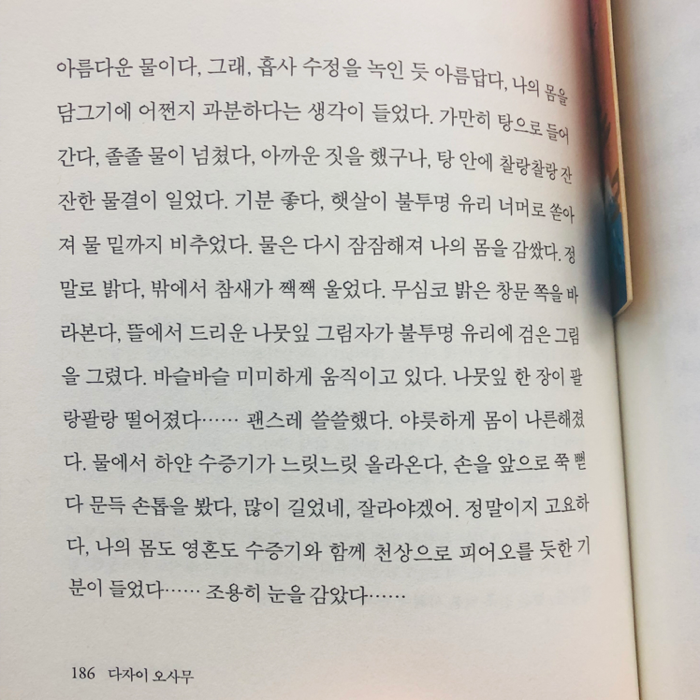 아름다운 물이다, 그래, 흡사 수정을 녹인 듯 아름답다, 나의 몸을
담그기에 어쩐지 과분하다는 생각이 들었다. 가만히 탕으로 들어
간다, 졸졸 물이 넘쳤다, 아까운 짓을 했구나, 탕 안에 찰랑찰랑 잔
잔한 물결이 일었다. 기분 좋다, 햇살이 불투명 유리 너머로 쏟아
져 물 밑까지 비추었다. 물은 다시 잠잠해져 나의 몸을 감쌌다. 정
말로 밝다, 밖에서 참새가 짹짹 울었다. 무심코 밝은 창문 쪽을 바
라본다, 뜰에서 드리운 나뭇잎 그림자가 불투명 유리에 검은 그림
을 그렸다. 바슬바슬 미미하게 움직이고 있다. 나뭇잎 한 장이 팔
랑팔랑 떨어졌다…… 괜스레 쓸쓸했다. 야릇하게 몸이 나른해졌
다. 물에서 하얀 수증기가 느릿느릿 올라온다, 손을 앞으로 쭉 뻗
다 문득 손톱을 봤다, 많이 길었네, 잘라야겠어. 정말이지 고요하
다, 나의 몸도 영혼도 수증기와 함께 천상으로 피어오를 듯한 기
분이 들었다…… 조용히 눈을 감았다……
186 다자이 오사무